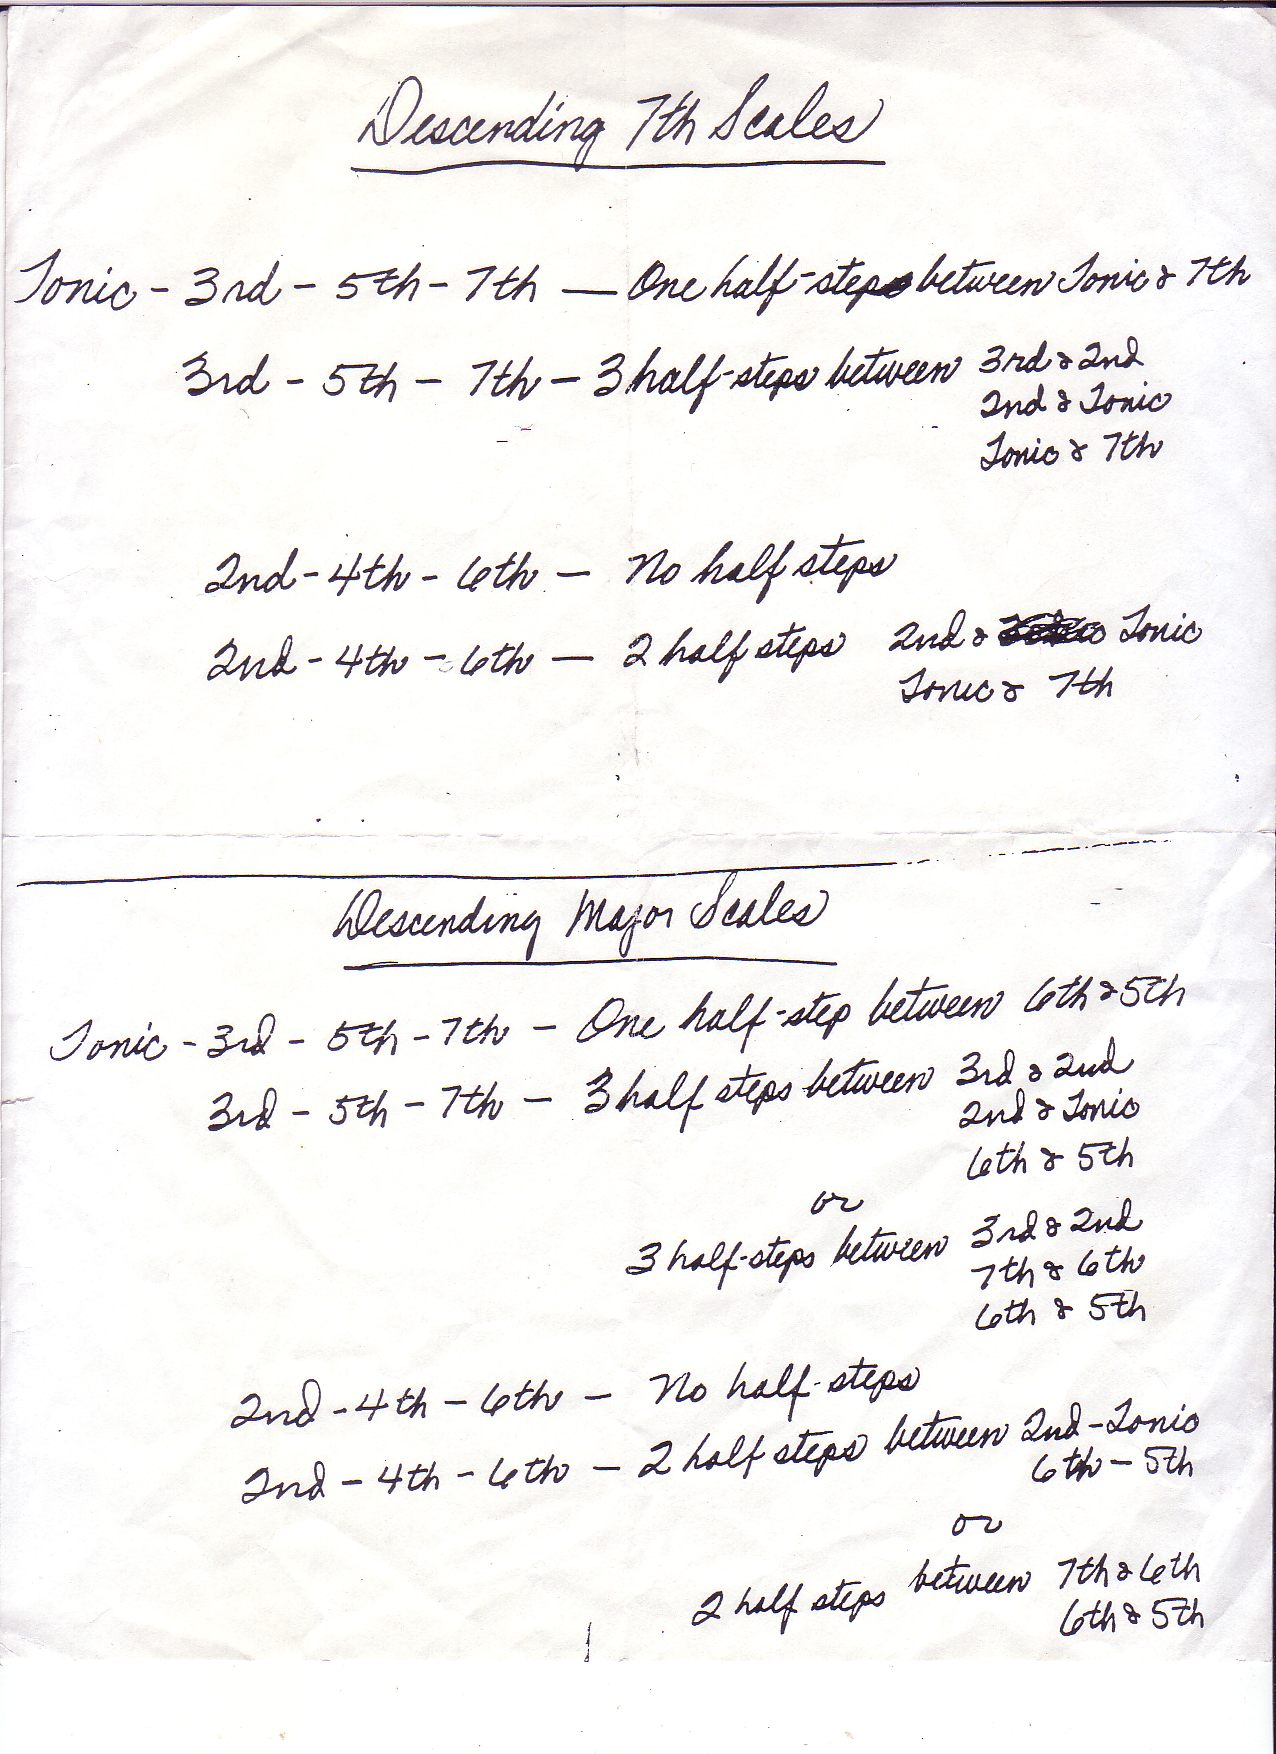 Descending 7th Scales
Tonic - 3rd - 5th - 7th — One half-step between Tonic & 7th
3rd - 5th - 7th - 3 half-steps between 3rd & 2nd
2nd & Tonic
Tonic & 7th
2nd - 4th - 6th - No half steps
2nd - 4th - 6th - 2 half steps 2nd & Tonic
Tonic & 7th
Descending Major Scales
Tonic - 3rd - 5th - 7th - One half-step between 6th & 5th
3rd - 5th - 7th - 3 half steps between 3rd & 2nd
2nd & Tonic
6th & 5th
or
3 half-steps between 3rd & 2nd
7th & 6th
6th & 5th
2nd - 4th - 6th - No half-steps
2nd - 4th - 6th - 2 half steps between 2nd - Tonic
6th - 5th
or
2 half steps between 7th & 6th
6th & 5th